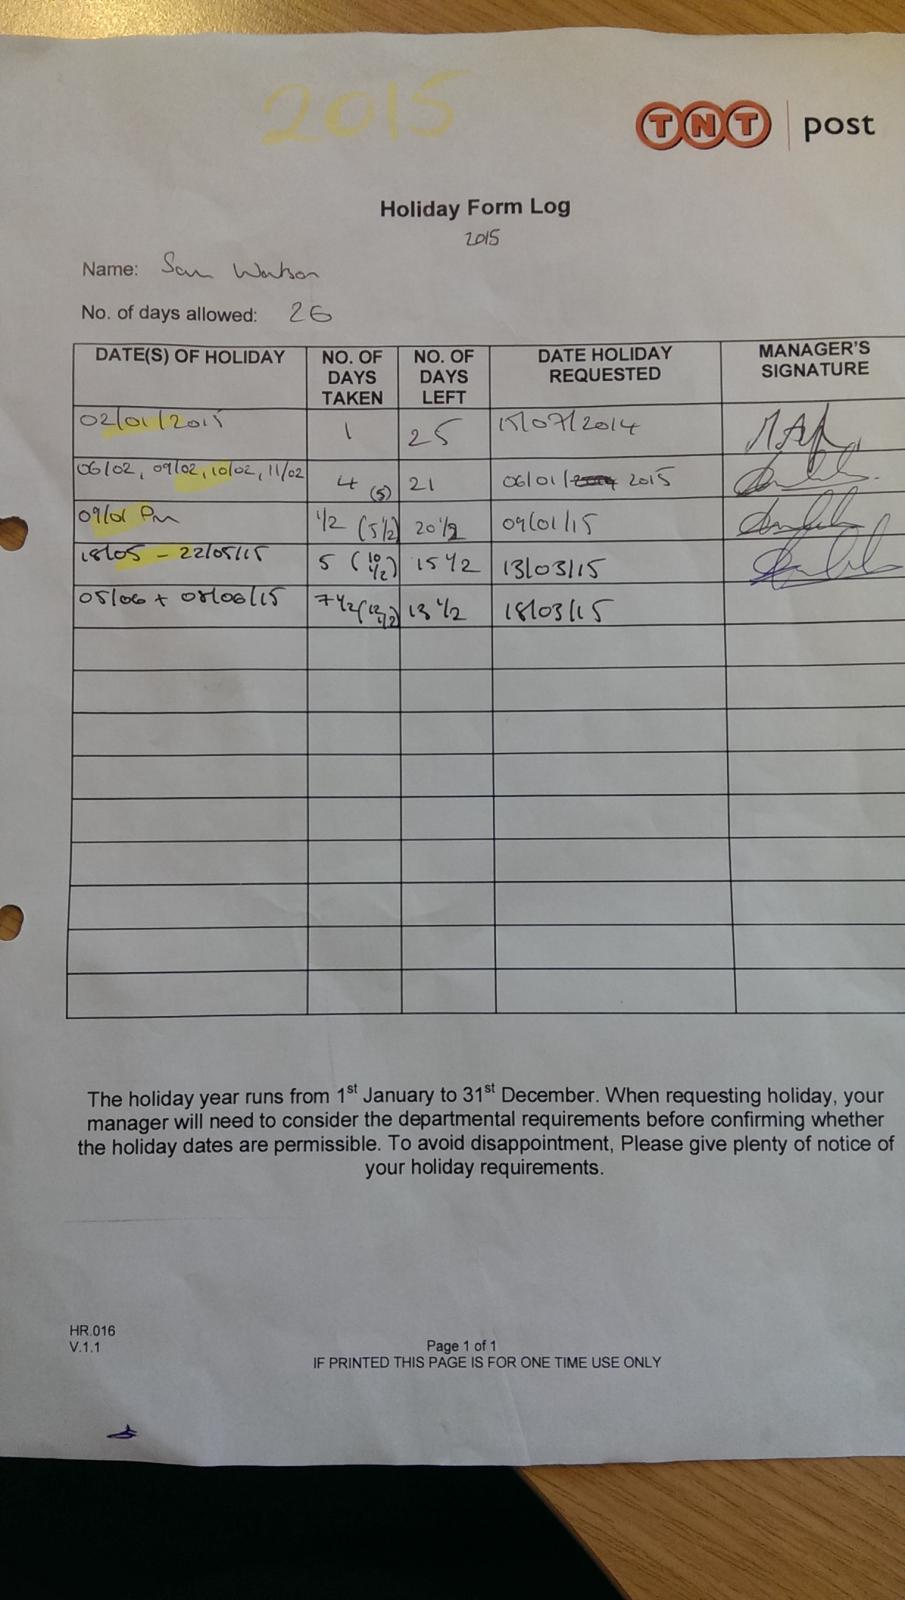 2015
TNT post
Holiday Form Log
2015
Name: Sam Watson
No. of days allowed: 26
DATE(S) OF HOLIDAY NO. OF DAYS TAKEN NO. OF DAYS LEFT DATE HOLIDAY REQUESTED MANAGER'S SIGNATURE
02/01/2015 1 25 15/07/2014
06/02, 09/02, 10/02, 11/02 4 (5) 21 06/01/ 2015
09/01 Pm 1/2 (5 1/2) 20 1/2 09/01/15
18/05 - 22/05/15 5 (10 1/2) 15 1/2 13/03/15
05/06 + 08/06/15 7 1/2 (12 1/2) 13 1/2 18/03/15
The holiday year runs from 1st January to 31st December. When requesting holiday, your
manager will need to consider the departmental requirements before confirming whether
the holiday dates are permissible. To avoid disappointment, Please give plenty of notice of
your holiday requirements.
HR.016
V.1.1
Page 1 of 1
IF PRINTED THIS PAGE IS FOR ONE TIME USE ONLY